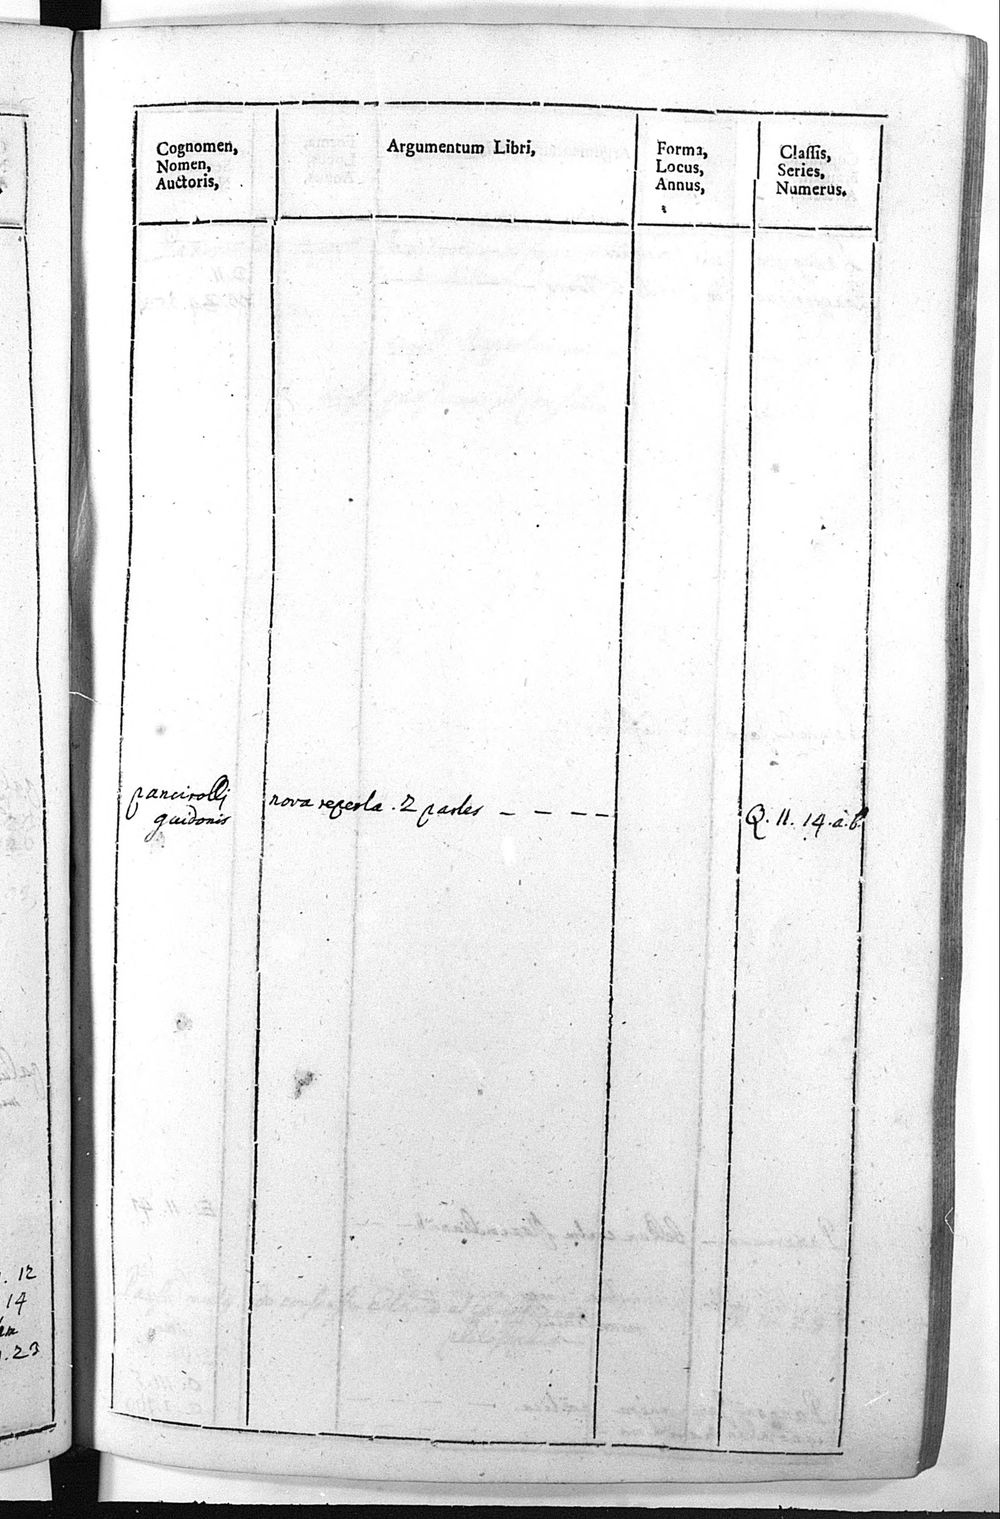 Cognomen,
Nomen,
Auctoris,
Argumentum Libri,
Forma,
Locus,
Annus,
Classis,
Series,
Numerus.
pancirolli
guidonis
nova reperta . 2 partes — — — —
Q. 11. 14. a. b.
. 12
14
. 23